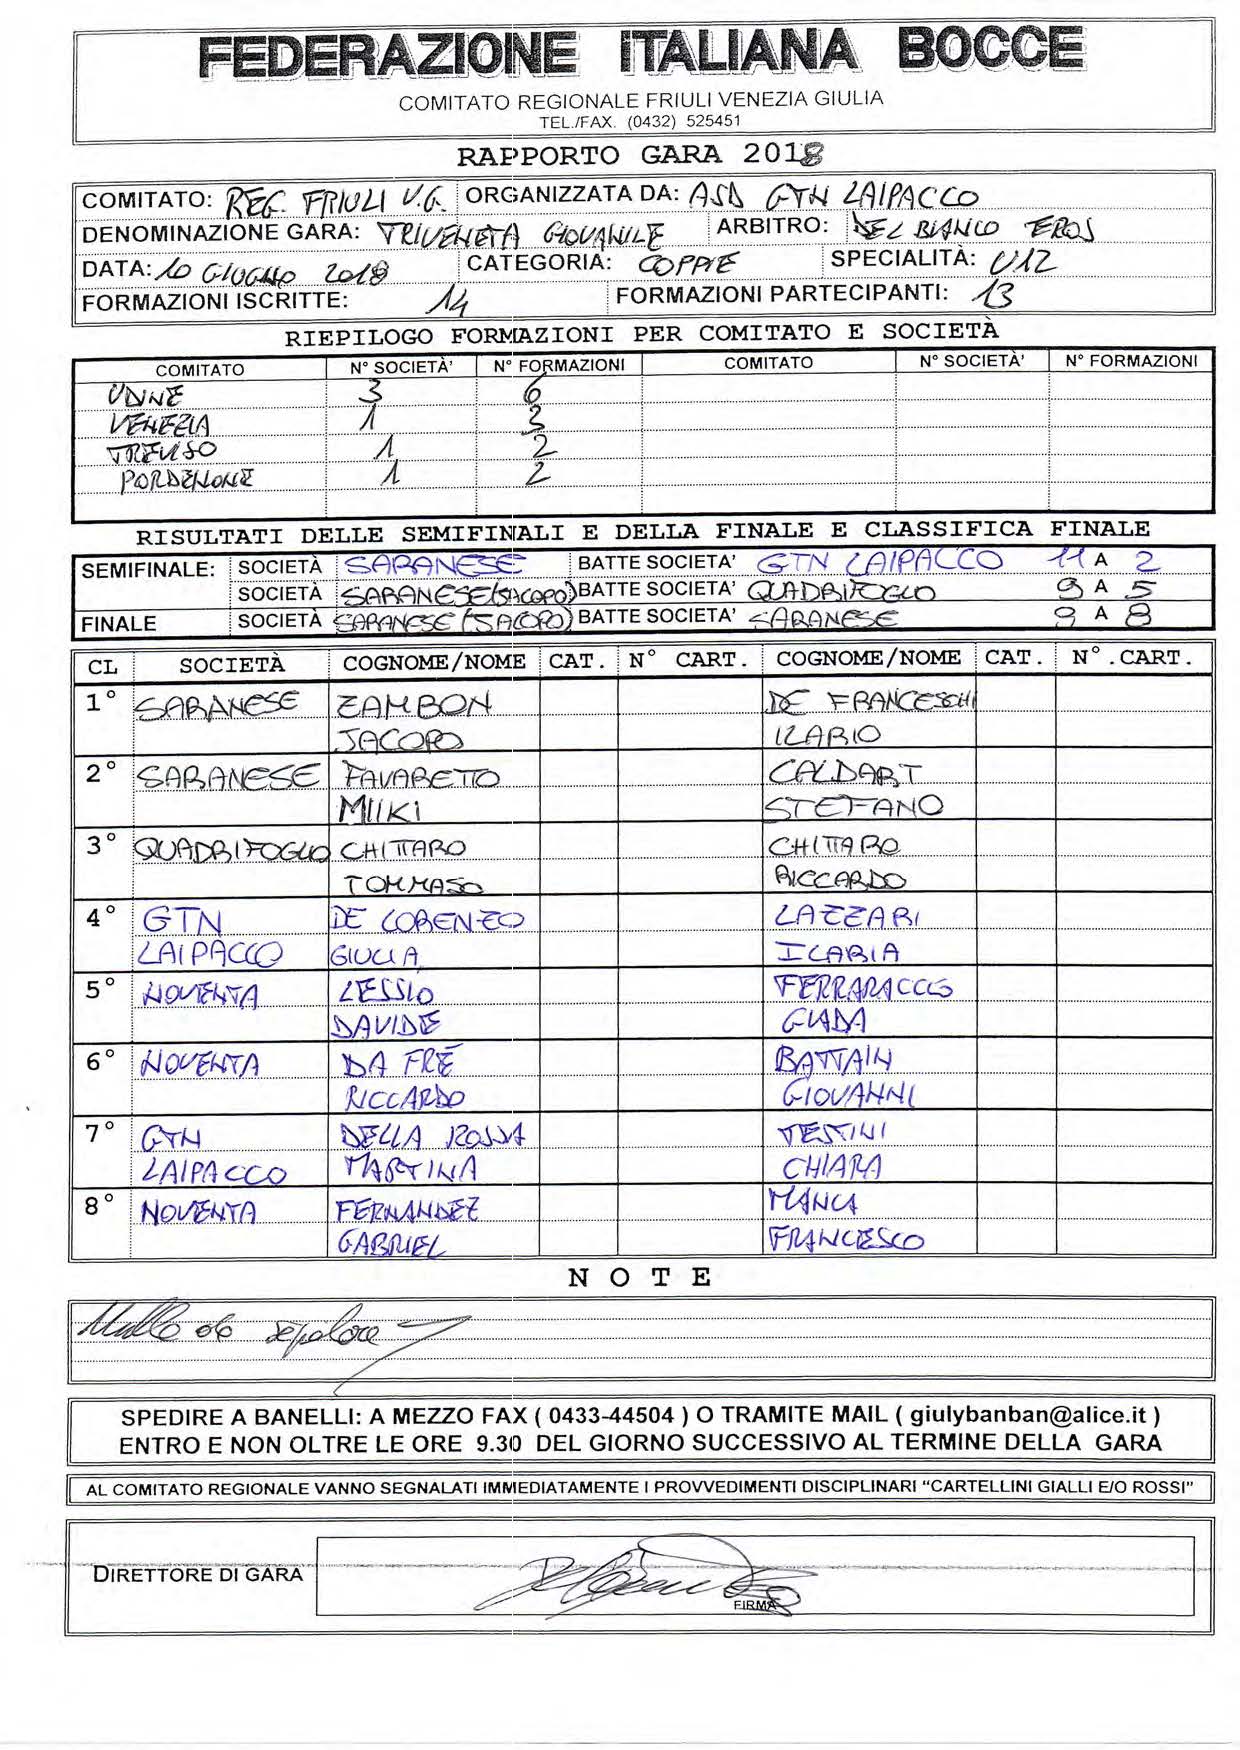 FEDERAZIONE ITALIANA BOCCE
COMITATO REGIONALE FRIULI VENEZIA GIULIA
TEL./FAX. (0432) 525451
RAPPORTO GARA 2018
COMITATO: REG. FRIULI V.G. ORGANIZZATA DA: ASD GTN LAIPACCO
DENOMINAZIONE GARA: TRIVENETA GIOVANILE ARBITRO: DEL BIANCO EROS
DATA: 10 GIUGNO 2018 CATEGORIA: COPPIE SPECIALITÀ: U12
FORMAZIONI ISCRITTE: 14 FORMAZIONI PARTECIPANTI: 13
RIEPILOGO FORMAZIONI PER COMITATO E SOCIETÀ
COMITATO N° SOCIETÀ' N° FORMAZIONI COMITATO N° SOCIETÀ' N° FORMAZIONI
UDINE 3 6
VENEZIA 1 3
TREVISO 1 2
PORDENONE 1 2
RISULTATI DELLE SEMIFINALI E DELLA FINALE E CLASSIFICA FINALE
SEMIFINALE: SOCIETÀ SARANESE BATTE SOCIETA' GTN LAIPACCO 11 A 2
SOCIETÀ SARANESE (JACOPO) BATTE SOCIETA' QUADRIFOGLIO 9 A 5
FINALE SOCIETÀ SARANESE (JACOPO) BATTE SOCIETA' SARANESE 9 A 8
CL SOCIETÀ COGNOME/NOME CAT. N° CART. COGNOME/NOME CAT. N°.CART.
1° SARANESE ZAMBON DE FRANCESCHI
JACOPO ILARIO
2° SARANESE FAVARETTO CALDART
MIIKI STEFANO
3° QUADRIFOGLIO CHITTARO CHITTARO
TOMMASO RICCARDO
4° GTN DE LORENZO LAZZARI
LAIPACCO GIULIA ILARIA
5° NOVENTA LESSIO FERRARACCIO
DAVIDE GIADA
6° NOVENTA DA FRÈ BATTAIN
RICCARDO GIOVANNI
7° GTN DELLA ROSSA TESTINI
LAIPACCO MARTINA CHIARA
8° NOVENTA FERNANDEZ MANCA
GABRIEL FRANCESCO
NOTE
Nulla da segnalare
SPEDIRE A BANELLI: A MEZZO FAX ( 0433-44504 ) O TRAMITE MAIL ( giulybanban@alice.it )
ENTRO E NON OLTRE LE ORE 9.30 DEL GIORNO SUCCESSIVO AL TERMINE DELLA GARA
AL COMITATO REGIONALE VANNO SEGNALATI IMMEDIATAMENTE I PROVVEDIMENTI DISCIPLINARI “CARTELLINI GIALLI E/O ROSSI”
DIRETTORE DI GARA
FIRMA